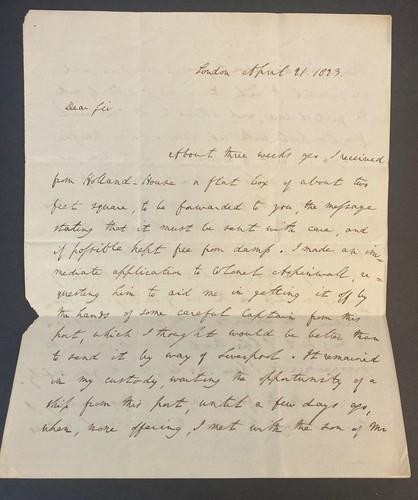 London April 21 1823.
Dear Sir.
About three weeks ago, I received
from Holland-House a flat box of about two
feet square, to be forwarded to you, the message
stating that it must be sent with care, and
if possible kept free from damp. I made an im-
mediate application to Colonel Aspinwall, re-
questing him to aid me in getting it off by
the hands of some careful Captain from this
port, which I thought would be better than
to send it by way of Liverpool. It remained
in my custody, waiting the opportunity of a
ship from this port, until a few days ago,
when, none offering, I met with the son of Mr